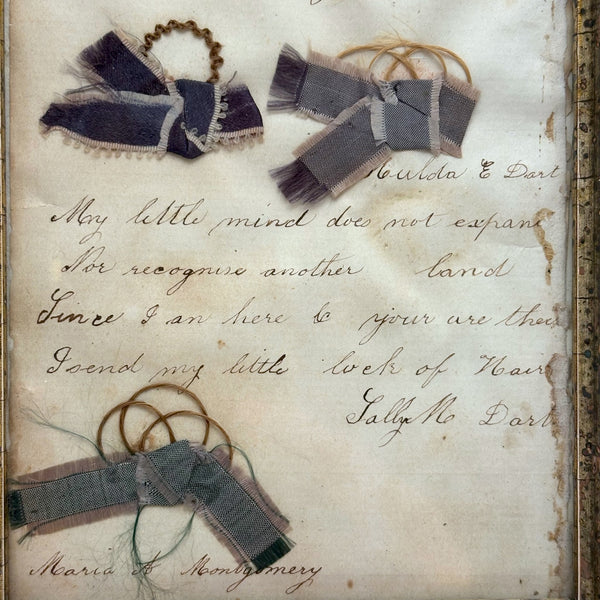 Hulda E Dart
My little mind does not expand
Nor recognise another land
Since I an here & your are ther
I send my little lock of Hair
Sally M Dart
Maria A Montgomery